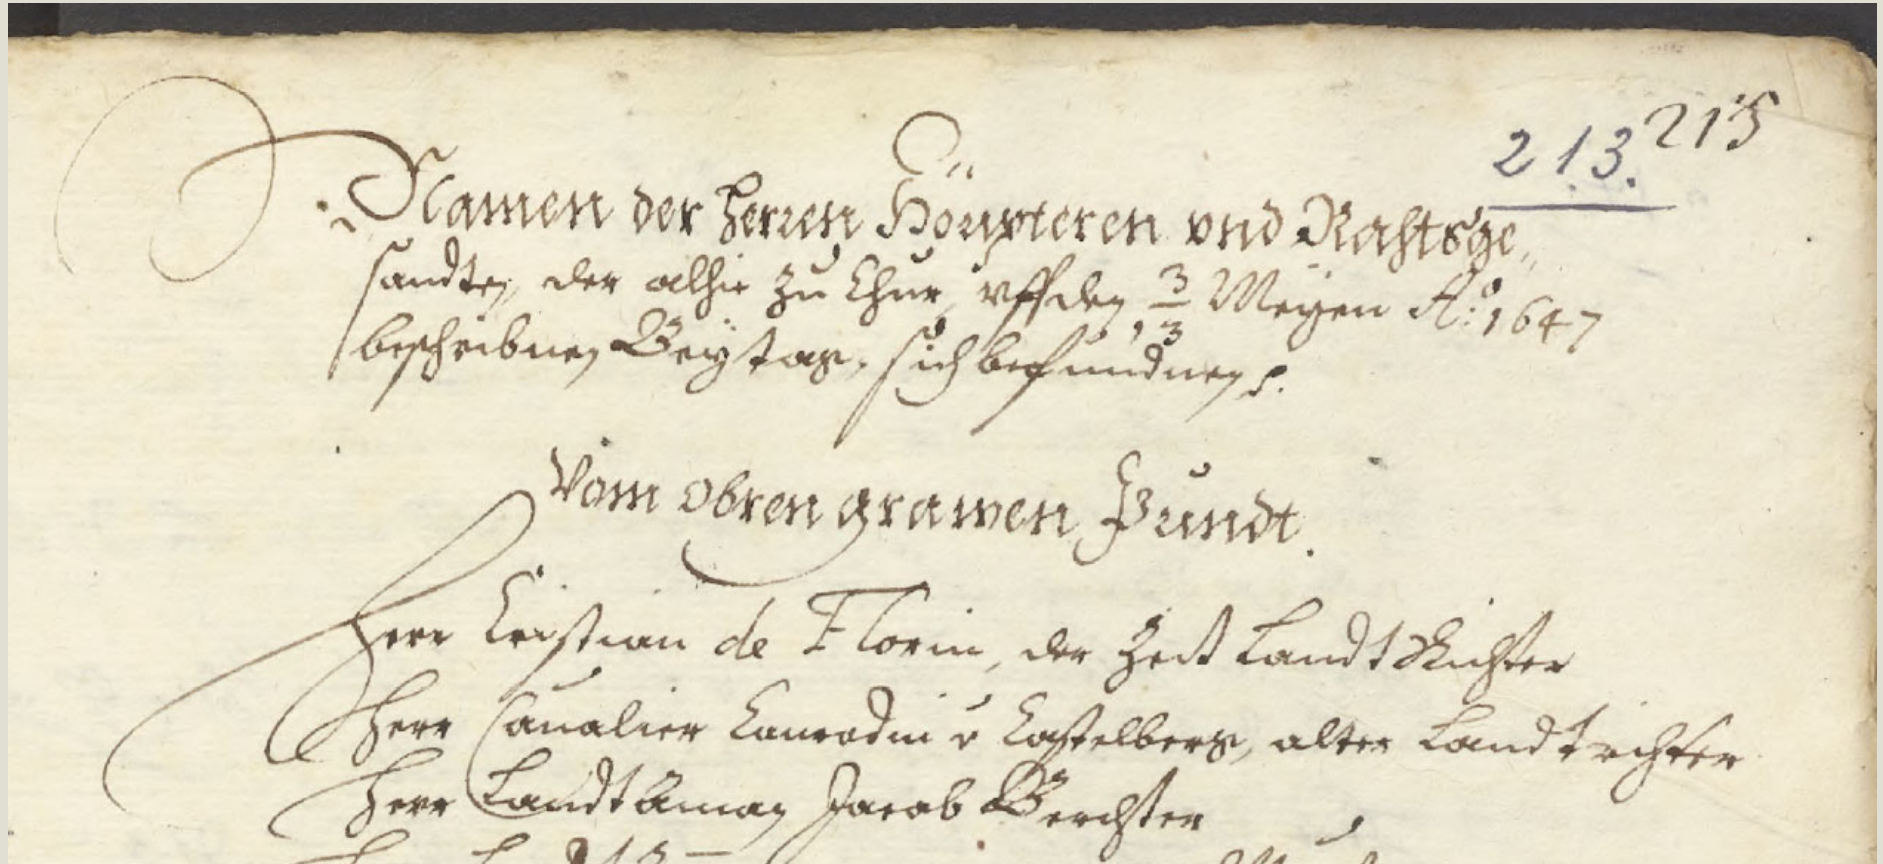 213. 215
Namen der Herren Höupteren vnd Rahtsge„
sandten, der alhie zu Chur, vff den 3/13 Meyen Aº: 1647
beschribnen Beytag, sich befundnen
Vom obren grawen Pundt.
Herr Cristian de Florin, der Zeit Landt Richter
Herr Caualier Conradin v Castelberg, alter Landtrichter
Herr LandtAman Jacob